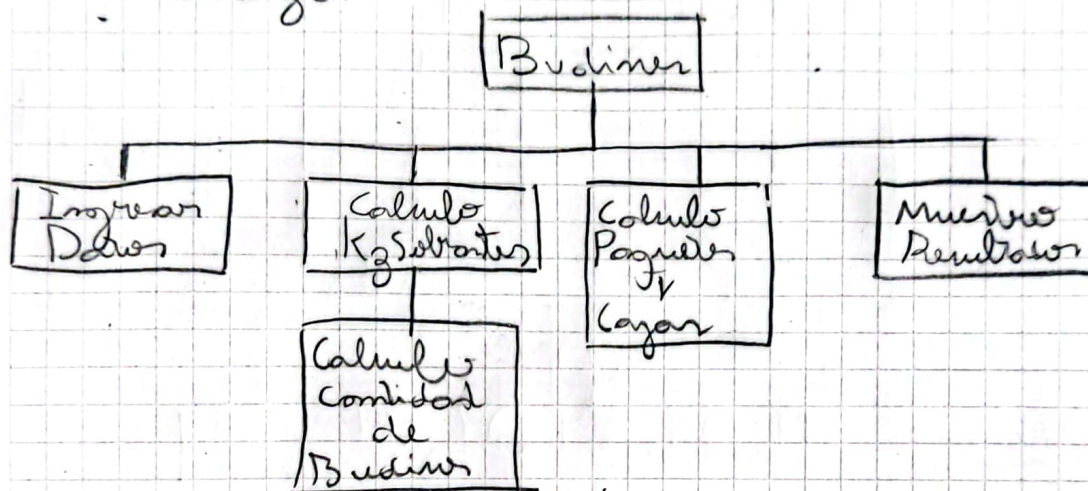 Budines
Ingresar
Datos
Calculo
Kg Sobrantes
Calculo
Paquetes
y
Cajas
Muestro
Resultados
Calculo
Cantidad
de
Budines